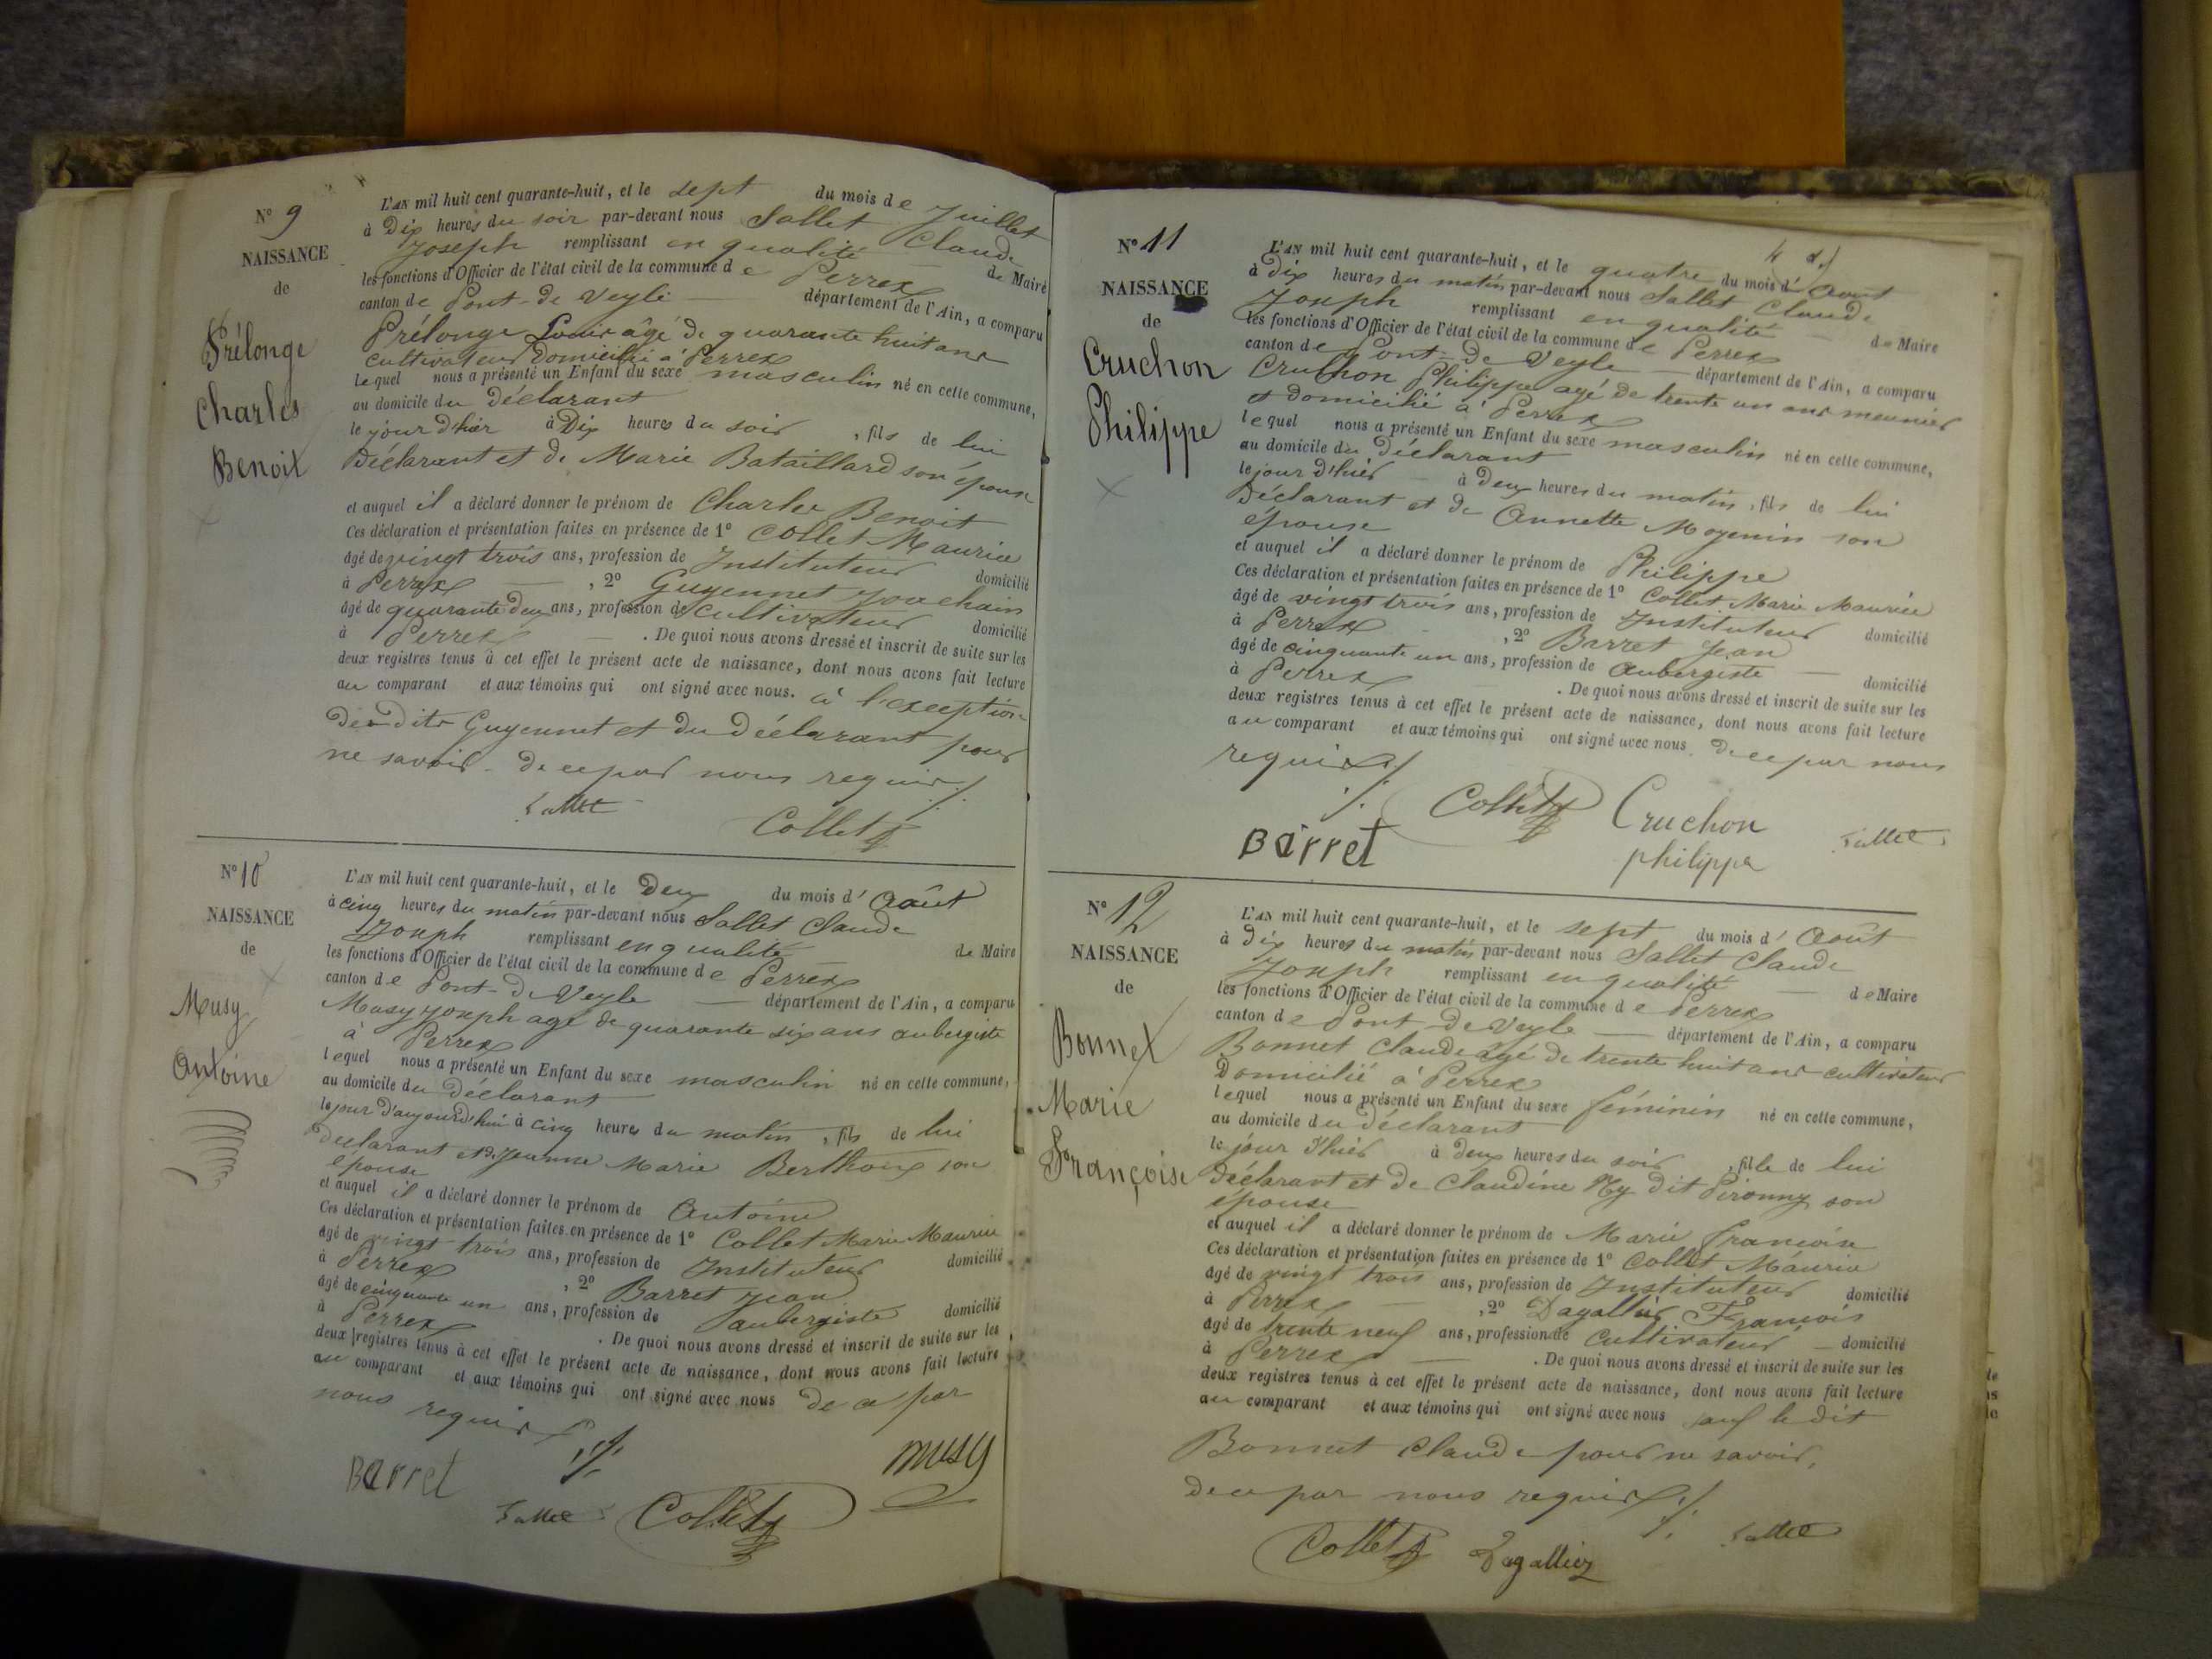 N° 9
NAISSANCE
de
Prélonge
Charles
Benoit
L'AN mil huit cent quarante-huit, et le sept du mois de Juillet
à Dix heures du soir par-devant nous Sallet Claude
Joseph remplissant en qualité de Maire
les fonctions d'Officier de l'état civil de la commune de Perrex
canton de Pont-de Veyle département de l'Ain, a comparu
Prélonge Louis âgé de quarante huit ans
cultivateur domicilié à Perrex
lequel nous a présenté un Enfant du sexe masculin né en cette commune,
au domicile du déclarant
le jour d'hier à Dix heures du soir, fils de lui
Déclarant et de Marie Bataillard son épouse
et auquel il a déclaré donner le prénom de Charles Benoit
Ces déclaration et présentation faites en présence de 1° Collet Maurice
âgé de vingt trois ans, profession de Instituteur domicilié
à Perrex, 2° Guyennet Jouachain
âgé de quarante deux ans, profession de cultivateur domicilié
à Perrex. De quoi nous avons dressé et inscrit de suite sur les
deux registres tenus à cet effet le présent acte de naissance, dont nous avons fait lecture
au comparant et aux témoins qui ont signé avec nous. à l'exception
des dits Guyennet et du Déclarant pour
ne savoir de ce par nous requis ./.
Sallet
Collet
N° 10
NAISSANCE
de
Musy
Antoine
L'AN mil huit cent quarante-huit, et le Deux du mois d'Août
à cinq heures du matin par-devant nous Sallet Claude
Joseph remplissant en qualité de Maire
les fonctions d'Officier de l'état civil de la commune de Perrex
canton de Pont-de Veyle département de l'Ain, a comparu
Musy Joseph agé de quarante six ans aubergiste
à Perrex
lequel nous a présenté un Enfant du sexe masculin né en cette commune,
au domicile du déclarant
le jour d'aujourd'hui à cinq heures du matin, fils de lui
Déclarant et de Jeanne Marie Berthoux son
épouse
et auquel il a déclaré donner le prénom de Antoine
Ces déclaration et présentation faites en présence de 1° Collet Marie Maurice
âgé de vingt trois ans, profession de Instituteur domicilié
à Perrex, 2° Barret Jean
âgé de cinquante un ans, profession de aubergiste domicilié
à Perrex. De quoi nous avons dressé et inscrit de suite sur les
deux registres tenus à cet effet le présent acte de naissance, dont nous avons fait lecture
au comparant et aux témoins qui ont signé avec nous de ce par
nous requis ./.
Barret
musy
Sallet
Collet
N° 11
NAISSANCE
de
Cruchon
Philippe
L'AN mil huit cent quarante-huit, et le quatre du mois d'Août
à Dix heures du matin par-devant nous Sallet Claude
Joseph remplissant en qualité de Maire
les fonctions d'Officier de l'état civil de la commune de Perrex
canton de Pont-de Veyle département de l'Ain, a comparu
Cruchon Philippe agé de trente un ans meunier
et domicilié à Perrex
lequel nous a présenté un Enfant du sexe masculin né en cette commune,
au domicile du Déclarant
le jour d'hier à Deux heures du matin, fils de lui
Déclarant et de Annette Moyenin son
épouse
et auquel il a déclaré donner le prénom de Philippe
Ces déclaration et présentation faites en présence de 1° Collet Marie Maurice
âgé de vingt trois ans, profession de Instituteur domicilié
à Perrex, 2° Barret Jean
âgé de cinquante un ans, profession de Aubergiste domicilié
à Perrex. De quoi nous avons dressé et inscrit de suite sur les
deux registres tenus à cet effet le présent acte de naissance, dont nous avons fait lecture
au comparant et aux témoins qui ont signé avec nous. De ce par nous
requis ./.
Collet
Cruchon
philippe
Barret
Sallet
N° 12
NAISSANCE
de
Bonnet
Marie
Françoise
L'AN mil huit cent quarante-huit, et le sept du mois d'Août
à Dix heures du matin par-devant nous Sallet Claude
Joseph remplissant en qualité de Maire
les fonctions d'Officier de l'état civil de la commune de Perrex
canton de Pont-de Veyle département de l'Ain, a comparu
Bonnet Claude âgé de trente huit ans cultivateur
Domicilié à Perrex
lequel nous a présenté un Enfant du sexe féminin né en cette commune,
au domicile du déclarant
le jour d'hier à deux heures du soir, fille de lui
déclarant et de Claudine Ny dit Pironny son
épouse
et auquel il a déclaré donner le prénom de Marie françoise
Ces déclaration et présentation faites en présence de 1° Collet Maurice
âgé de vingt trois ans, profession de Instituteur domicilié
à Perrex, 2° Dagallier François
âgé de trente neuf ans, profession de cultivateur domicilié
à Perrex. De quoi nous avons dressé et inscrit de suite sur les
deux registres tenus à cet effet le présent acte de naissance, dont nous avons fait lecture
au comparant et aux témoins qui ont signé avec nous sauf le dit
Bonnet Claude pour ne savoir,
de ce par nous requis ./.
Collet
Dagallier
Sallet